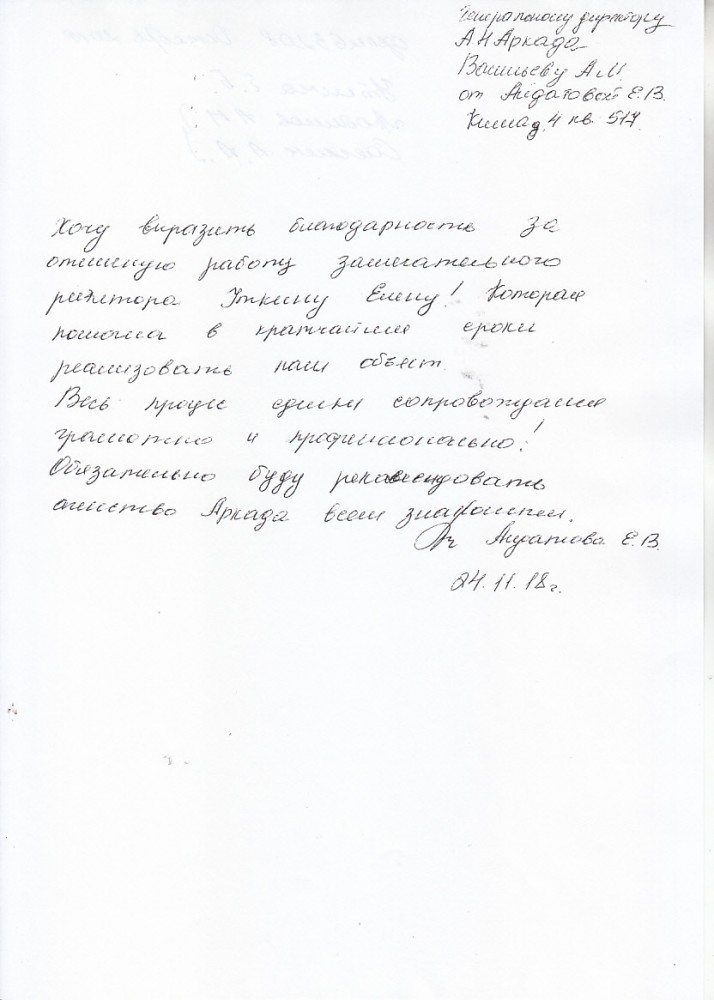 Генеральному директору
АН Аркада
Васильеву А.М.
от Айдатовой Е.В.
д. 4 кв. 517
Хочу виразить благодарность за
отличную работу замечательного
риэлтора Уткину Елену! Которая
помогла в кратчайшие сроки
реализовать наш объект.
Весь процес сделки сопровождался
грамотно и профисионально!
Обязательно буду рекомендовать
агенство Аркада всем знакомым.
Е.В.
24.11.18г.